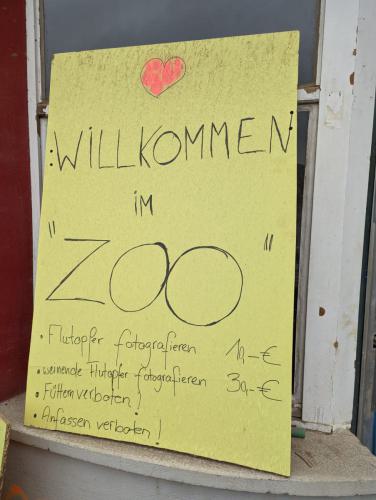 :WILLKOMMEN:
im
"ZOO"
• Flutopfer fotografieren 10,-€
• weinende Flutopfer fotografieren 30,-€
• Füttern verboten!
• Anfassen verboten!